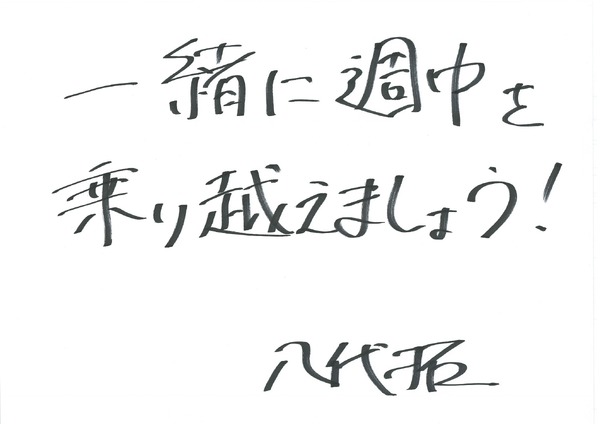 一緒に週中を
乗り越えましょう!
八代拓